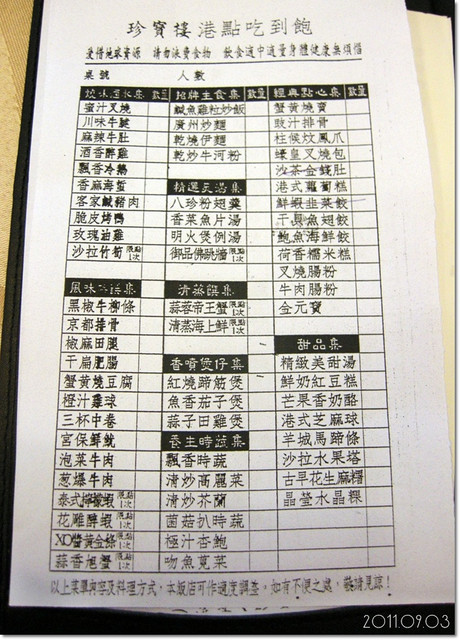 珍寶樓港點吃到飽
愛惜地球資源 請勿浪費食物 飲食適中適量身體健康無煩惱
桌號 人數
燒味滷水集 數量
蜜汁叉燒
川味牛腱
麻辣牛肚
酒香醉雞
飄香冷鵝
香麻海蜇
客家鹹豬肉
脆皮烤鴨
玫瑰油雞
沙拉竹筍 限點1次
黑椒牛柳條
京都排骨
椒麻田腿
干扁肥腸
蟹黃燒豆腐
橙汁雞球
三杯中卷
宮保鮮魷
泡菜牛肉
蔥爆牛肉
泰式檸檬蝦 限點1次
花雕醉蝦 限點1次
XO醬黃金條 限點1次
蒜香旭蟹 限點1次
招牌主食集 數量
鹹魚雞粒炒飯
廣州炒麵
乾燒伊麵
乾炒牛河粉
精選天湯集
八珍粉翅羹
香菜魚片湯
明火煲例湯
御品佛跳牆 限點1次
清蒸饌集
蒜蓉帝王蟹 限點1次
清蒸海上鮮 限點1次
香噴煲仔集
紅燒蹄筋煲
魚香茄子煲
蒜子田雞煲
養生時蔬集
飄香時蔬
清炒高麗菜
清炒芥蘭
菌菇扒時蔬
極汁杏鮑
吻魚莧菜
經典點心集 數量
蟹黃燒賣
豉汁排骨
柱候炆鳳爪
蠔皇叉燒包
沙茶金錢肚
港式蘿蔔糕
鮮蝦韭菜餃
干貝魚翅餃
鮑魚海鮮餃
荷香糯米糕
叉燒腸粉
牛肉腸粉
金元寶
甜品集
精緻美甜湯
鮮奶紅豆糕
芒果香奶酪
港式芝麻球
羊城馬蹄條
沙拉水果塔
古早花生麻糬
晶瑩水晶粿
以上菜單內容及料理方式，本飯店可作適度調整，如有不便之處，敬請見諒！
2011.09.03